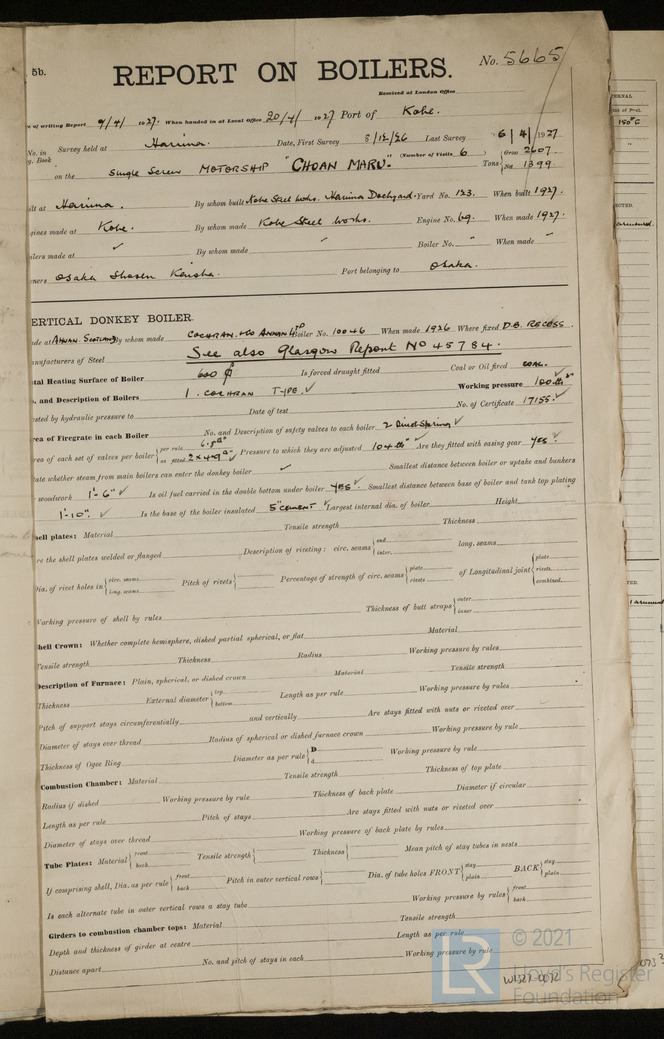 5b.
No. 5665
REPORT ON BOILERS.
Received at London Office
of writing Report 9/4/1927. When handed in at Local Office 20/4/1927 Port of Kobe.
No. in Survey held at Harima. Date, First Survey 8/12/26 Last Survey 6/4/1927
g. Book (Number of Visits 6)
on the Single Screw MOTORSHIP "CHOAN MARU." Tons { Gross 2607. Net 1399
ilt at Harima. By whom built Kobe Steel Works. Harima Dockyard. Yard No. 123. When built 1927.
gines made at Kobe. By whom made Kobe Steel Works. Engine No. 69. When made 1927.
oilers made at ✓ By whom made " Boiler No. " When made "
ners Osaka Shosen Kaisha. Port belonging to Osaka.
ERTICAL DONKEY BOILER.
ade at Annan. Scotland By whom made COCHRAN & Co ANNAN LTD Boiler No. 10046 When made 1926 Where fixed D.B. RECESS.
anufacturers of Steel See also Glasgow Report No 45784.
tal Heating Surface of Boiler 600 Is forced draught fitted Coal or Oil fired COAL. ✓
o. and Description of Boilers 1. COCHRAN TYPE. ✓ Working pressure 100 lb ✓
ested by hydraulic pressure to Date of test No. of Certificate 17155. ✓
rea of Firegrate in each Boiler No. and Description of safety valves to each boiler 2 Direct Spring ✓
rea of each set of valves per boiler { per rule as fitted Pressure to which they are adjusted 104 lb ✓ Are they fitted with easing gear Yes ✓
tate whether steam from main boilers can enter the donkey boiler ✓ Smallest distance between boiler or uptake and bunkers
woodwork 1'-6" ✓ Is oil fuel carried in the double bottom under boiler Yes ✓ Smallest distance between base of boiler and tank top plating
1'-10" ✓ Is the base of the boiler insulated 5" cement ✓ Largest internal dia. of boiler Height
hell plates: Material Tensile strength Thickness
re the shell plates welded or flanged Description of riveting: circ. seams { end inter. long. seams
Dia. of rivet holes in { circ. seams long. seams Pitch of rivets { Percentage of strength of circ. seams { plate rivets of Longitudinal joint { plate rivets combined
Working pressure of shell by rules Thickness of butt straps { outer inner
Shell Crown: Whether complete hemisphere, dished partial spherical, or flat Material
Tensile strength Thickness Radius Working pressure by rules
Description of Furnace: Plain, spherical, or dished crown Material Tensile strength
Thickness External diameter { top bottom Length as per rule Working pressure by rules
Pitch of support stays circumferentially and vertically Are stays fitted with nuts or riveted over
Diameter of stays over thread Radius of spherical or dished furnace crown Working pressure by rule
Thickness of Ogee Ring Diameter as per rule { D d Working pressure by rule
Combustion Chamber: Material Tensile strength Thickness of top plate
Radius if dished Working pressure by rule Thickness of back plate Diameter if circular
Length as per rule Pitch of stays Are stays fitted with nuts or riveted over
Diameter of stays over thread Working pressure of back plate by rules
Tube Plates: Material { front back Tensile strength { Thickness { Mean pitch of stay tubes in nests
If comprising shell, Dia. as per rule { front back Pitch in outer vertical rows { Dia. of tube holes FRONT { stay plain BACK { stay plain
Is each alternate tube in outer vertical rows a stay tube Working pressure by rules { front back
Girders to combustion chamber tops: Material Tensile strength
Depth and thickness of girder at centre Length as per rule
Distance apart No. and pitch of stays in each Working pressure by rule
W1327-0072
LR
© 2021
Lloyd's Register
Foundation